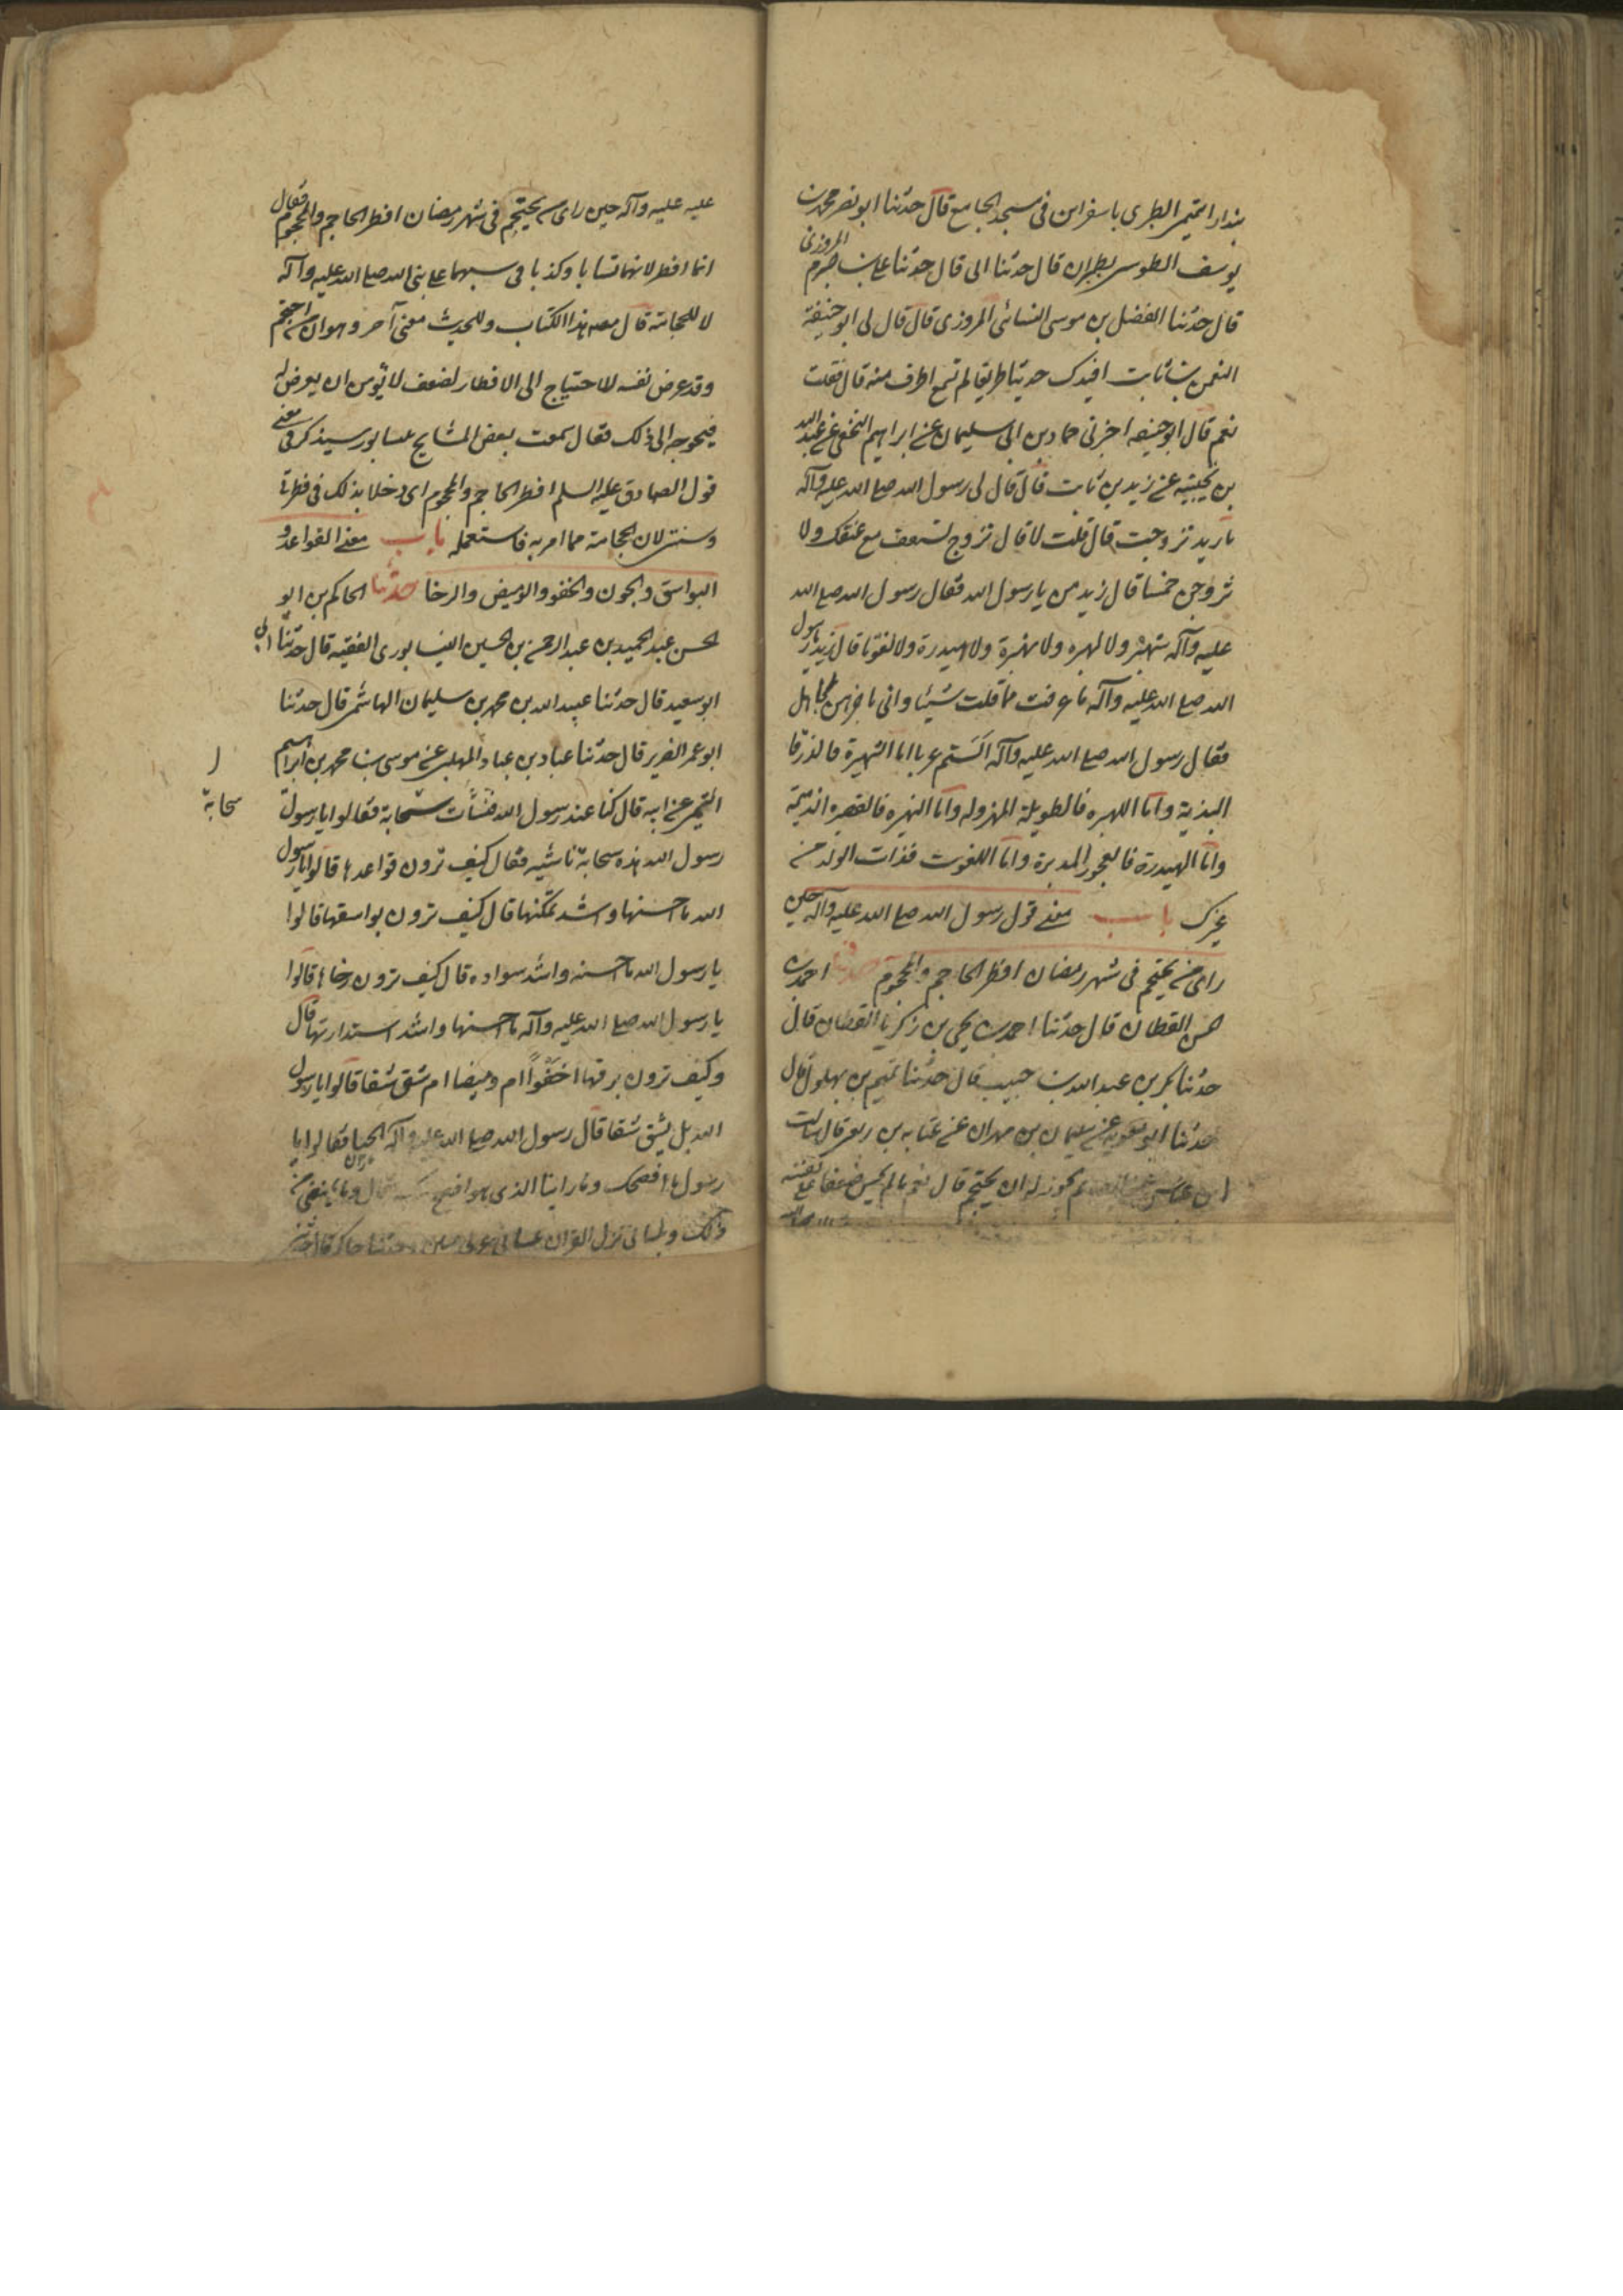 بندار التميمى الطبرى باسفراين فى مسجد الجامع قال حدثنا ابو نصر محمد بن
يوسف الطوسى بطبران قال حدثنا ابى قال حدثنا على بن خشرم المروزى
قال حدثنا الفضل بن موسى السنائى المروزى قال قال لى ابو حنيفة
النعمن بن ثابت افيدك حديثا طريفا لم تسمع اطرف منه قال فقلت
نعم قال ابو حنيفه اخبرنى حماد بن ابى سليمان عن ابراهيم النخعى عن عبد الله
بن نجيبه عن زيد بن ثابت قال قال لى رسول الله صلى الله عليه وآله
يا زيد تزوجت قال قلت لا قال تزوج تستعف مع عفتك ولا
تزوجن خمسا قال زيد من يا رسول الله فقال رسول الله صلى الله
عليه وآله شهبرة ولا لهبره ولا نهبرة ولا هيدرة ولا لفوتا قال زيد يا رسول
الله صلى الله عليه وآله ما عرفت مما قلت شيئا وانى باخرهن لجاهل
فقال رسول الله صلى الله عليه وآله الستم عربا اما الشهبرة فالزرقا
البذية واما اللهبره فالطويلة المهزوله واما النهبره فالقصيره الدميمة
واما الهيدرة فالعجوز المدبرة واما اللفوت فذات الولد من
غيرك باب معنى قول رسول الله صلى الله عليه وآله حين
راى من يحتجم فى شهر رمضان افطر الحاجم والمحجوم حدثنا احمد بن
الحسن القطان قال حدثنا احمد بن يحيى بن زكريا القطان قال
حدثنا بكر بن عبد الله بن حبيب قال حدثنا تميم بن بهلول قال
حدثنا ابو معويه عن سليمان بن مهران عن عبايه بن ربعى قال سالت
ابن عباس يجوز له ان يحتجم قال نعم ما لم يخش ضعفا على نفسه
عليه عليه وآله حين راى من يحتجم فى شهر رمضان افطر الحاجم والمحجوم فقال
انما افطر لانهما تسابا وكذبا فى سبهما على نبى الله صلى الله عليه وآله
لا للحجامة قال مصنف هذا الكتاب وللحديث معنى آخر وهو ان من احتجم
وقد عرض نفسه للاحتياج الى الافطار لضعف لا يؤمن ان يعرض له
فيحوجه الى ذلك فقال سمعت بعض المشايخ بنيسابور يذكر فى معنى
قول الصادق عليه السلم افطر الحاجم والمحجوم اى دخلا بذلك فى فطرتى
وسنتى لان الحجامة مما امر به فاستعمله باب معنى القواعد و
البواسق والجون والخفو والوميض والرحا حدثنا الحاكم بن ابو
الحسن عبد الحميد بن عبد الرحمن بن الحسين النيسابورى الفقيه قال حدثنا ابى
ابو سعيد قال حدثنا عبيد الله بن محمد بن سليمان الهاشمى قال حدثنا
ابو عمر الضرير قال حدثنا عباد بن عباد المهلبى عن موسى بن محمد بن ابراهيم
التيمى عن ابيه قال كنا عند رسول الله فنشأت سحابة فقالوا يا رسول
سحابة
رسول الله هذه سحابة ناشيه فقال كيف ترون قواعدها قالوا يا رسول
الله ما احسنها واشد تمكنها قال كيف ترون بواسقها قالوا
يا رسول الله ما احسنه واشد سواده قال كيف ترون رحاها قالوا
يا رسول الله صلى الله عليه وآله ما احسنها واشد استدارتها قال
وكيف ترون برقها اخفوا ام وميضا ام شق شقا قالوا يا رسول
الله بل يشق شقا قال رسول الله صلى الله عليه وآله الحيا فقالوا يا
رسول ما افصحك وما راينا الذى هو افصح منك قال وما يمنعنى من
ذلك وبلسانى نزل القران بلسان عربى مبين وحدثنا حاكم قال حدثنى